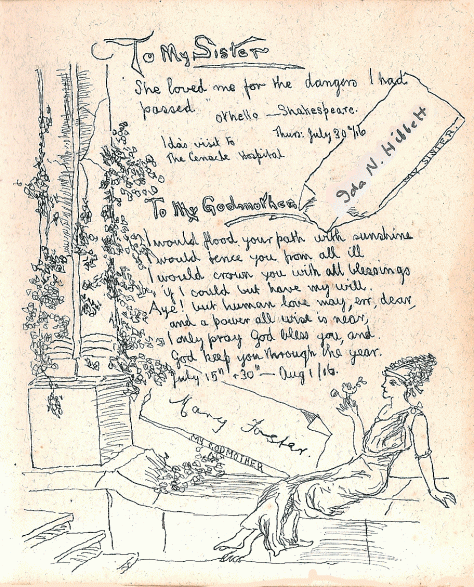 To My Sister
She loved me for the dangers I had
passed"
Othello — Shakespeare.
Thurs: July 30"/16
Ida's visit to
The Cenacle Hospital
Ida N. Hibbett
MY SISTER
To My Godmother
I would flood your path with sunshine
I would fence you from all ill
I would crown you with all blessings
if I could but have my will.
Aye! but human love may, err, dear,
and a power all wise is near,
I only pray God bless you, and
God keep you through the year.
July 15" & 30" — Aug 1/16.
Mary Foster
MY GODMOTHER